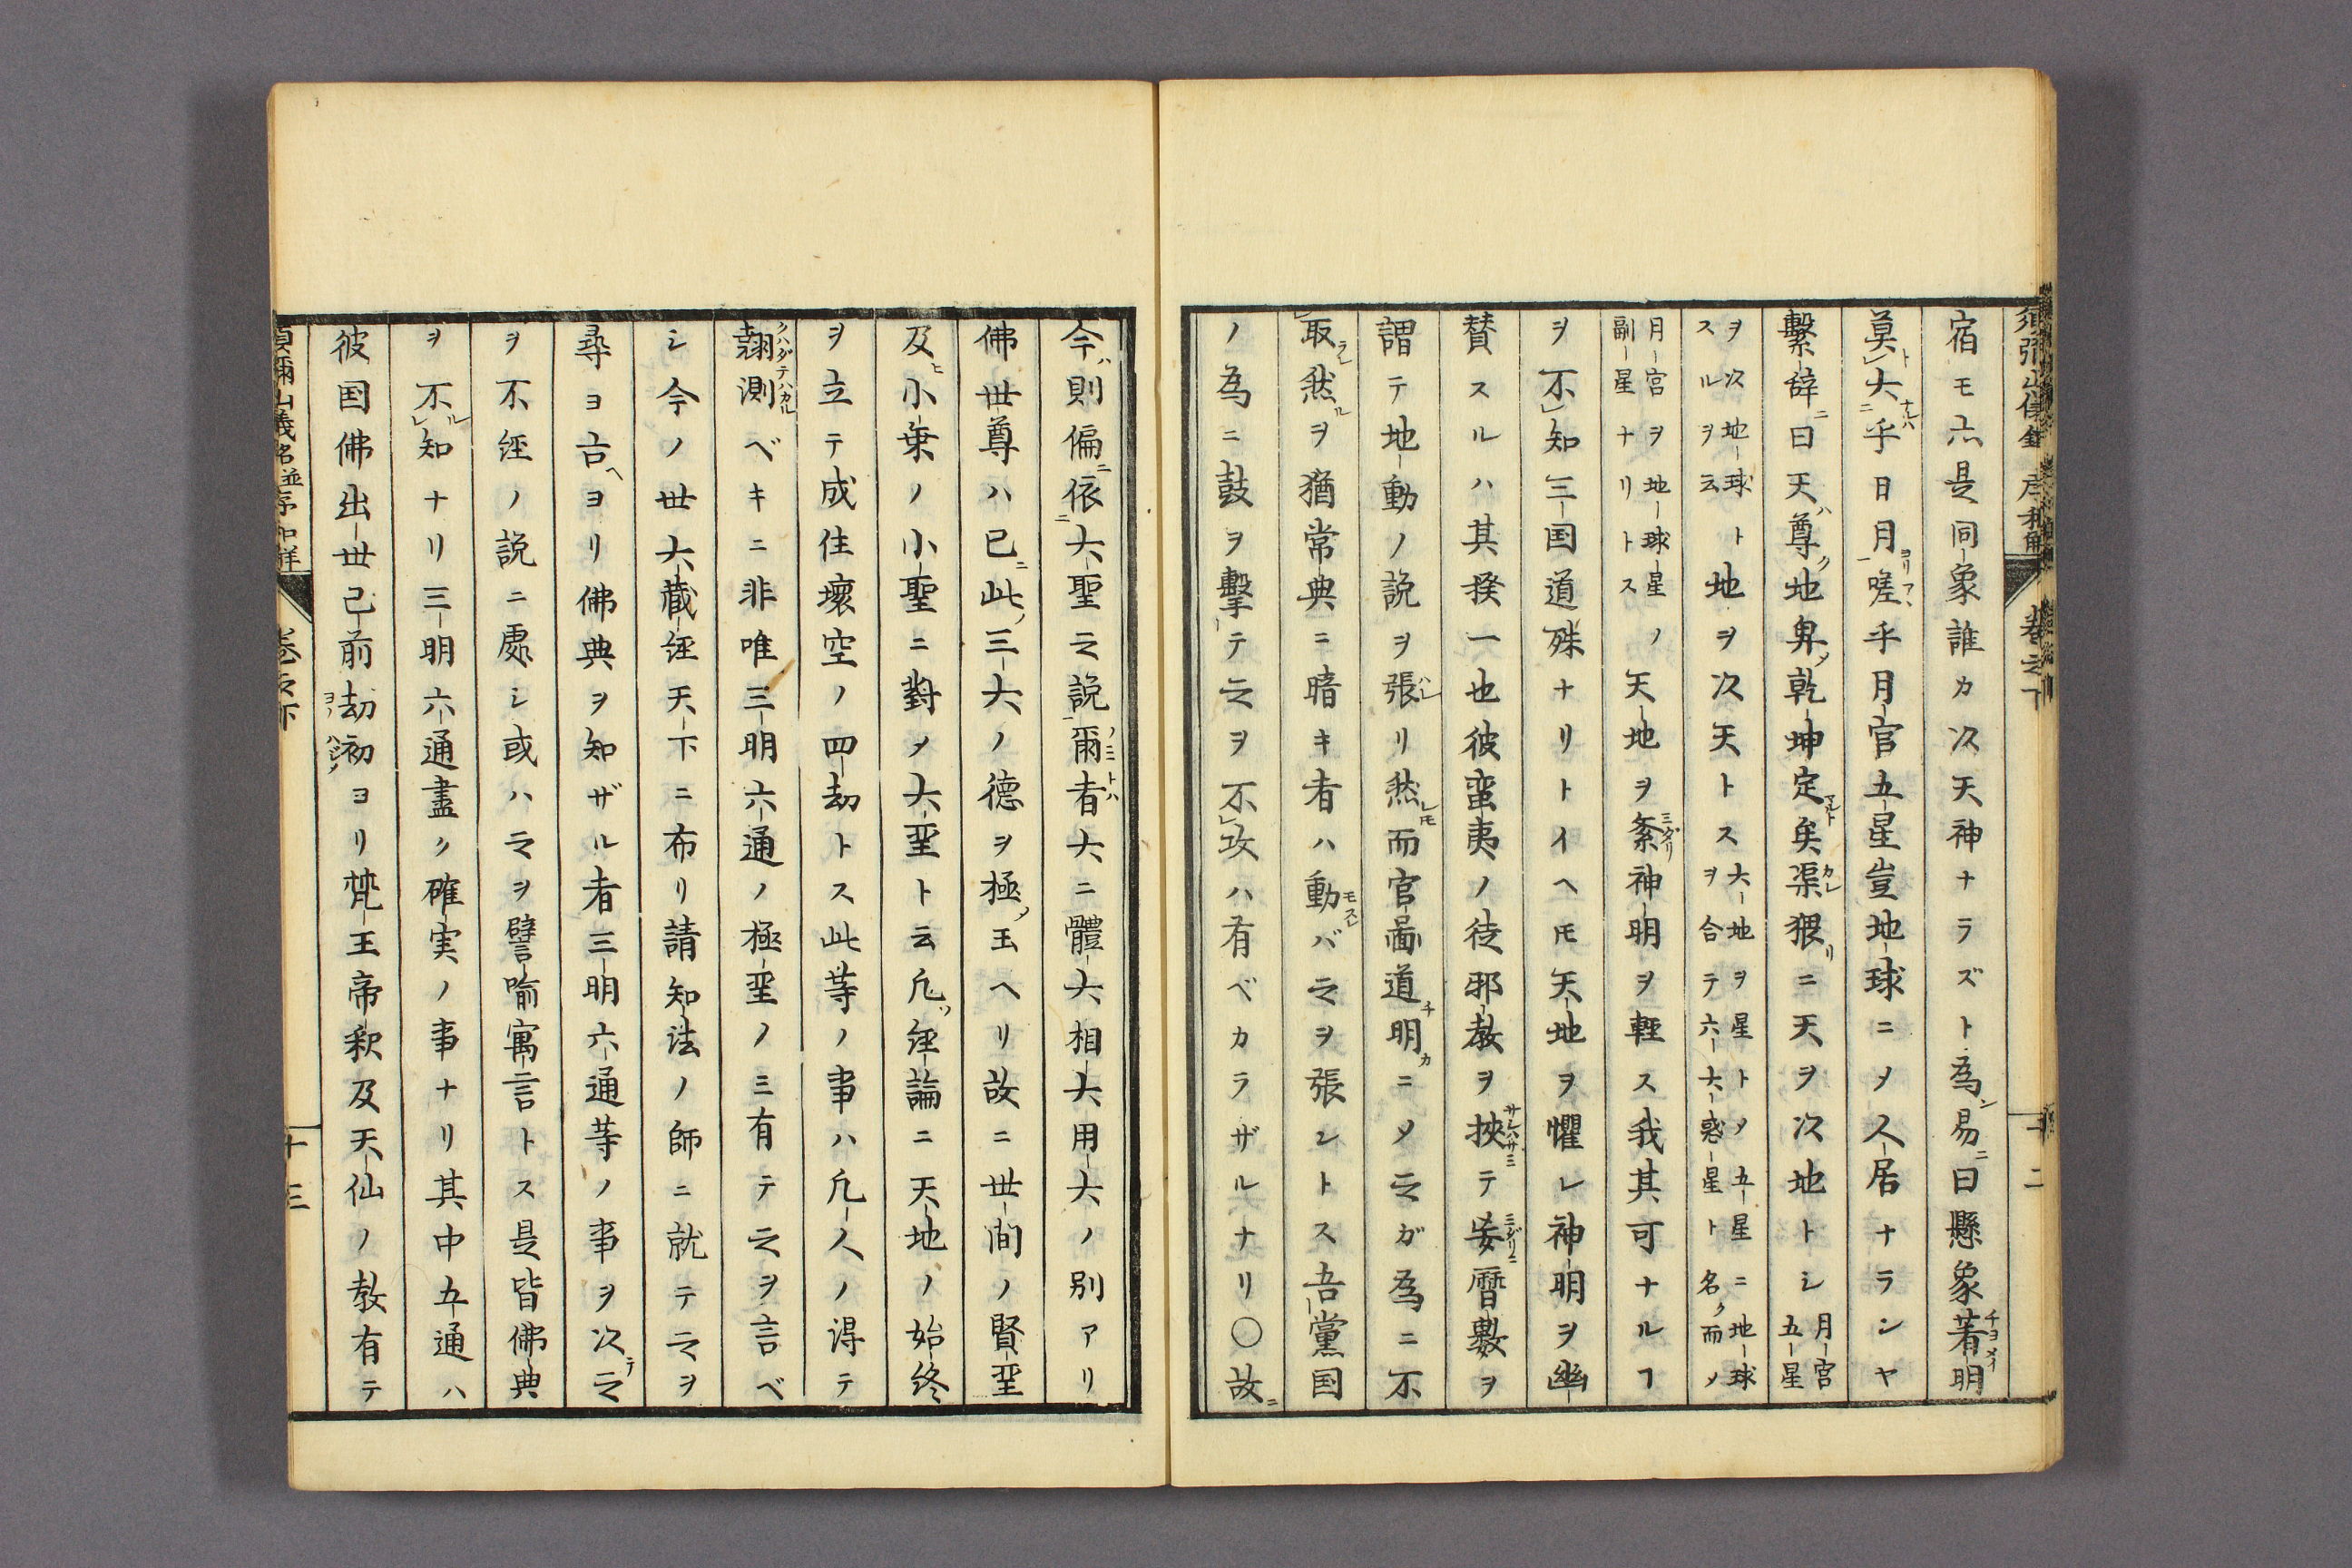 宿モ亦是同象誰カ次天神ナラズト為ン易ニ曰懸象著明
莫大乎日月嗟乎月官五星豈地球ニメ人居ナランヤ
繋辞曰天尊地卑乾坤定矣渠猥ニ天ヲ次地トシ月宮五星
ヲ次地球トスルヲ云地ヲ次天トス大地ヲ星トメ五星ニ地球ヲ合テ六大惑星ト名ク而メ
月宮ヲ地球星ノ副星ナリトス天地ヲ紊神明ヲ軽ス我其可ナルヿ
ヲ不知三国道殊ナリトイヘ𪜈天地ヲ懼レ神明ヲ幽
賛スルハ其揆一也彼蛮夷ノ徒邪教ヲ挾テ妄暦數ヲ
謂テ地動ノ説ヲ張リ然而官啚道明ニメ之ガ為ニ不
取然ヲ猶常典ニ暗キ者ハ動バ之ヲ張ントス吾黨国
ノ為ニ鼓ヲ撃テ之ヲ不攻ハ有ベカラザルナリ〇故
今則偏依大聖之説爾者大ニ體大相大用大ノ別アリ
佛世尊ハ已此三大ノ德ヲ極玉ヘリ故ニ世間ノ賢聖
及小乗ノ小聖ニ對メ大聖ト云凡経論ニ天地ノ始終
ヲ立テ成住壞空ノ四劫トス此等ノ事ハ凡人ノ得テ
翹測ベキニ非唯三明六通ノ極聖ノミ有テ之ヲ言ベ
シ今ノ世大蔵経天下ニ布リ請知法ノ師ニ就テ之ヲ
尋ヨ古ヨリ佛典ヲ知ザル者三明六通等ノ事ヲ次之
ヲ不経ノ説ニ處シ或ハ之ヲ譬喩寓言トス是皆佛典
ヲ不知ナリ三明六通盡ク確実ノ事ナリ其中五通ハ
彼国佛出世已前劫初ヨリ梵王帝釈及天仙ノ教有テ
須彌山儀名並序和解 卷之下 十三